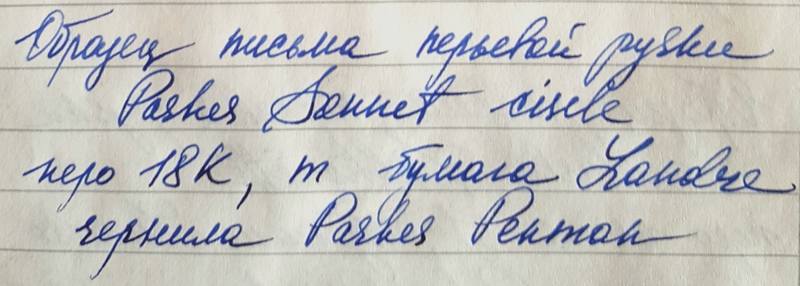 Образец письма перьевой ручки
Parker Sonnet cisele
перо 18К, m бумага Landre
чернила Parker Penman